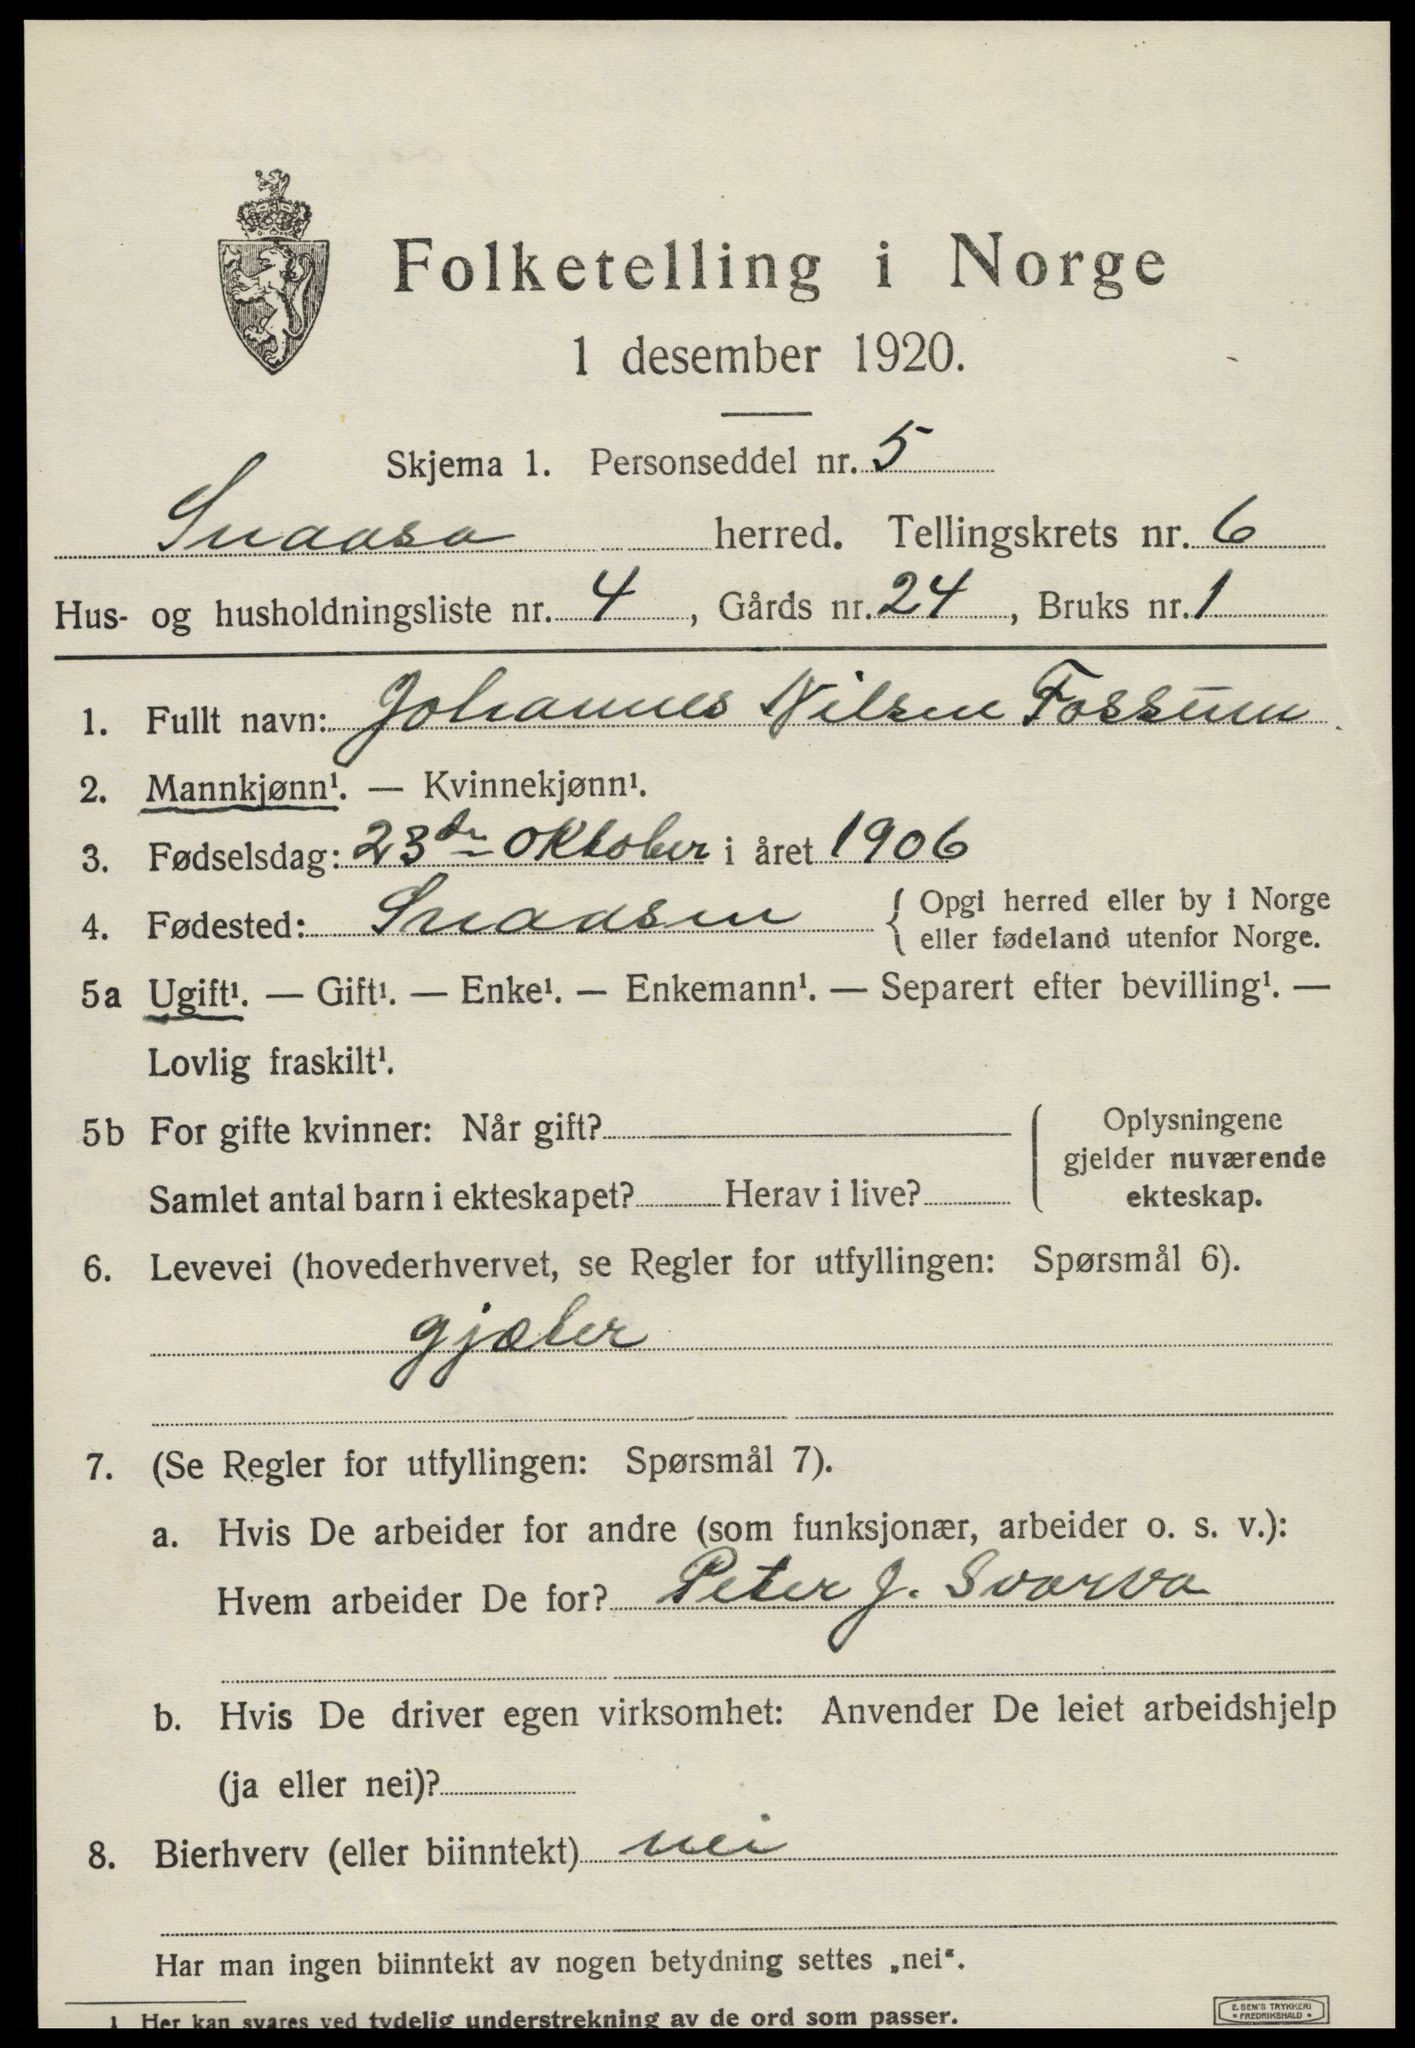 Folketelling i Norge
1 desember 1920.
Skjema 1. Personseddel nr. 5
Snaasa herred. Tellingskrets nr. 6
Hus- og husholdningsliste nr. 4, Gårds nr. 24, Bruks nr. 1
1. Fullt navn: Johannes Nilsen Fossum
2. Mannkjønn¹. — Kvinnekjønn¹.
3. Fødselsdag: 23de oktober i året 1906
4. Fødested: Snaasen { Opgi herred eller by i Norge
eller fødeland utenfor Norge.
5a Ugift¹. — Gift¹. — Enke¹. — Enkemann¹. — Separert efter bevilling¹. —
Lovlig fraskilt¹.
5b For gifte kvinner: Når gift?
Samlet antal barn i ekteskapet? Herav i live?
Oplysningene
gjelder nuværende
ekteskap.
6. Levevei (hovederhvervet, se Regler for utfyllingen: Spørsmål 6).
gjæter
7. (Se Regler for utfyllingen: Spørsmål 7).
a. Hvis De arbeider for andre (som funksjonær, arbeider o. s. v.):
Hvem arbeider De for? Peter J. Svarva
b. Hvis De driver egen virksomhet: Anvender De leiet arbeidshjelp
(ja eller nei)?
8. Bierhverv (eller biinntekt) nei
Har man ingen biinntekt av nogen betydning settes „nei“.
1 Her kan svares ved tydelig understrekning av de ord som passer.
E. SEM'S TRYKKERI
• FREDRIKSHALD •